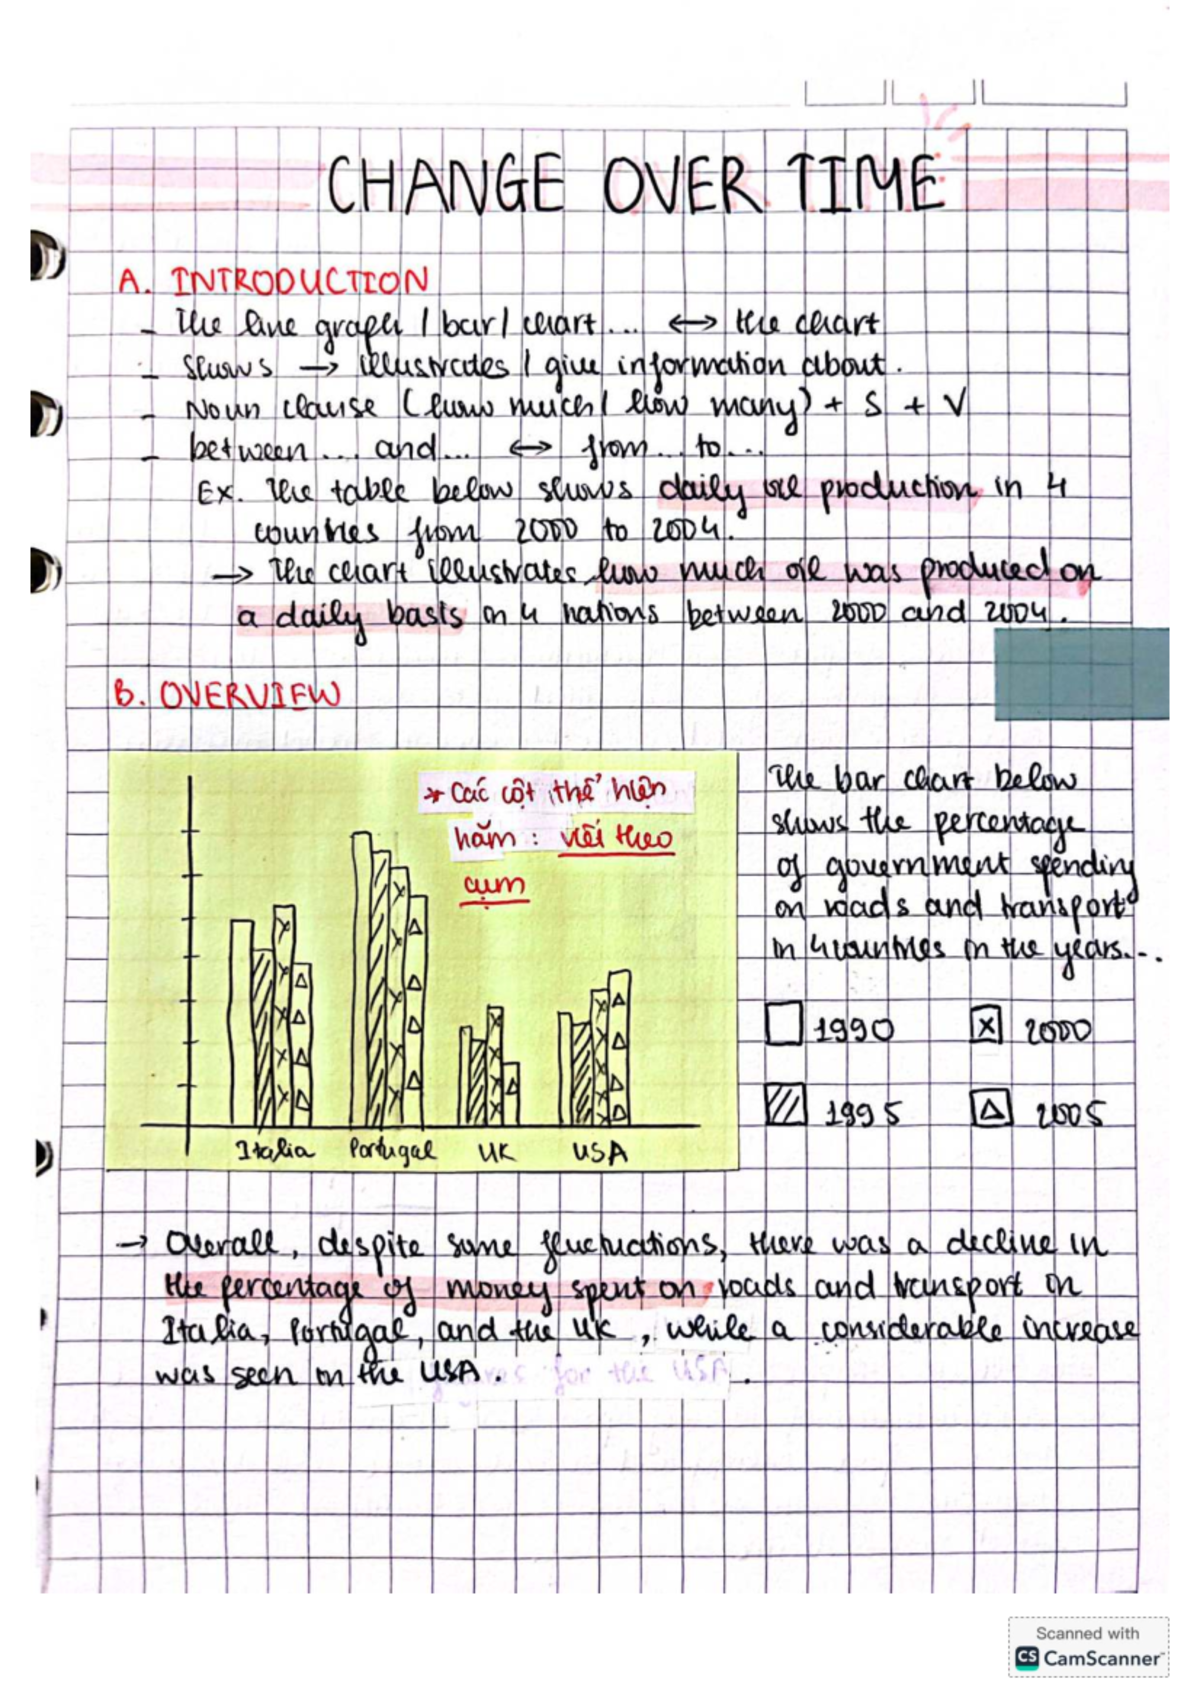 CHANGE OVER TIME
A. INTRODUCTION
- The line graph / bar / chart... ↔ the chart
- Shows → illustrates / give information about.
- Noun clause (how much / how many) + S + V
- between ... and... ↔ from... to...
Ex. The table below shows daily oil production in 4
countries from 2000 to 2004.
→ The chart illustrates how much oil was produced on
a daily basis in 4 nations between 2000 and 2004.
B. OVERVIEW
* Các cột thể hiện
năm : viết theo
cụm
Italia Portugal UK USA
The bar chart below
shows the percentage
of government spending
on roads and transport
in 4 countries in the years...
1990 2000
1995 2005
→ Overall, despite some fluctuations, there was a decline in
the percentage of money spent on roads and transport in
Italia, Portugal, and the UK, while a considerable increase
was seen in the USA. for the USA.
Scanned with
CS CamScanner